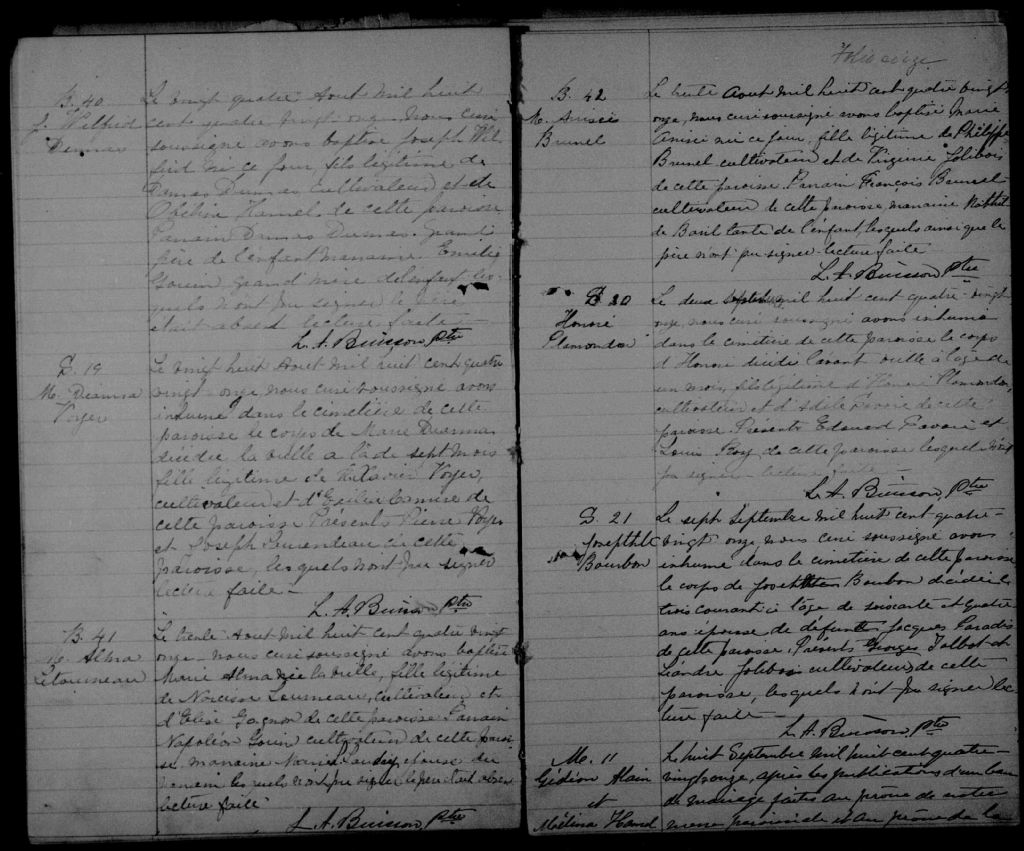 B. 40
J. Wilbrid
Dumas
Le vingt quatre Aout mil huit
cent quatre vingt onze nous curé
soussigné avons baptisé Joseph Wil
frid né ce jour, fils légitime de
Damas Dumas cultivateur et de
Hamel de cette paroisse
Parrain Damas Dumas grand
père de l'enfant marraine Emilie
Gouin grand mère de l'enfant les-
quels n'ont pu signer le père
était absent lecture faite —
L. A. Buisson Ptre
S. 19
M. Dianna
Voyer
Le vingt huit Aout mil huit cent quatre
vingt onze, nous curé soussigné avons
inhumé dans le cimetière de cette
paroisse le corps de Marie Dianna
décédée la veille a l'âge de sept mois
fille légitime de Voyer,
cultivateur et d' de
cette paroisse Présents Pierre Voyer
et Joseph de cette
paroisse, lesquels n'ont pu signer
lecture faite —
L. A. Buisson, Ptre
B. 41
M. Alma
Létourneau
Le trente Aout mil huit cent quatre vingt
onze nous curé soussigné avons baptisé
Marie Alma née la veille, fille légitime
de Narcisse Letourneau, cultivateur et
d'Elise Gagnon de cette paroisse Parrain
Napoléon Gouin cultivateur de cette parois-
se, marraine Marie épouse du
parrain lesquels n'ont pu signer le père étant absent
lecture faite
L. A. Buisson Ptre
Folio onze
B. 42
M. Anisie
Brunel
Le trente Aout mil huit cent quatre vingt
onze, nous curé soussigné avons baptisé Marie
Anisie née ce jour, fille légitime de Philippe
Brunel cultivateur et de Virginie Jolibois
de cette paroisse. Parrain François Brunel
cultivateur de cette paroisse, marraine
de Basil tante de l'enfant, lesquels ainsi que le
père n'ont pu signer lecture faite
L. A. Buisson Ptre
S 20
Honoré
Plamondon
Le deux Septembre mil huit cent quatre vingt
onze, nous curé soussigné avons inhumé
dans le cimetière de cette paroisse le corps
d'Honoré décédé l'avant veille à l'âge de
un mois, fils légitime d'Honoré Plamondon,
cultivateur et d'Adèle de cette
paroisse Présents Edouard et
Louis Roy de cette paroisse lesquels n'ont
pu signer — lecture faite —
L. A. Buisson, Ptre
S. 21
Josephte
Bourbon
Le sept Septembre mil huit cent quatre-
vingt onze, nous curé soussigné avons
inhumé dans le cimetière de cette paroisse
le corps de Josephte Bourbon décédée le
trois courant à l'âge de soixante et quatre
ans épouse de défunt Jacques Paradis
de cette paroisse. Présents Georges Talbot et
Léandre Jolibois cultivateurs de cette
paroisse, lesquels n'ont pu signer lec-
ture faite —
L. A. Buisson, Ptre
M. 11
Gédéon Alain
et
Mélina Hamel
Le huit Septembre mil huit cent quatre-
vingt onze, après les publications d'un ban
de mariage faites au prône de notre
messe paroissiale et au prône de la